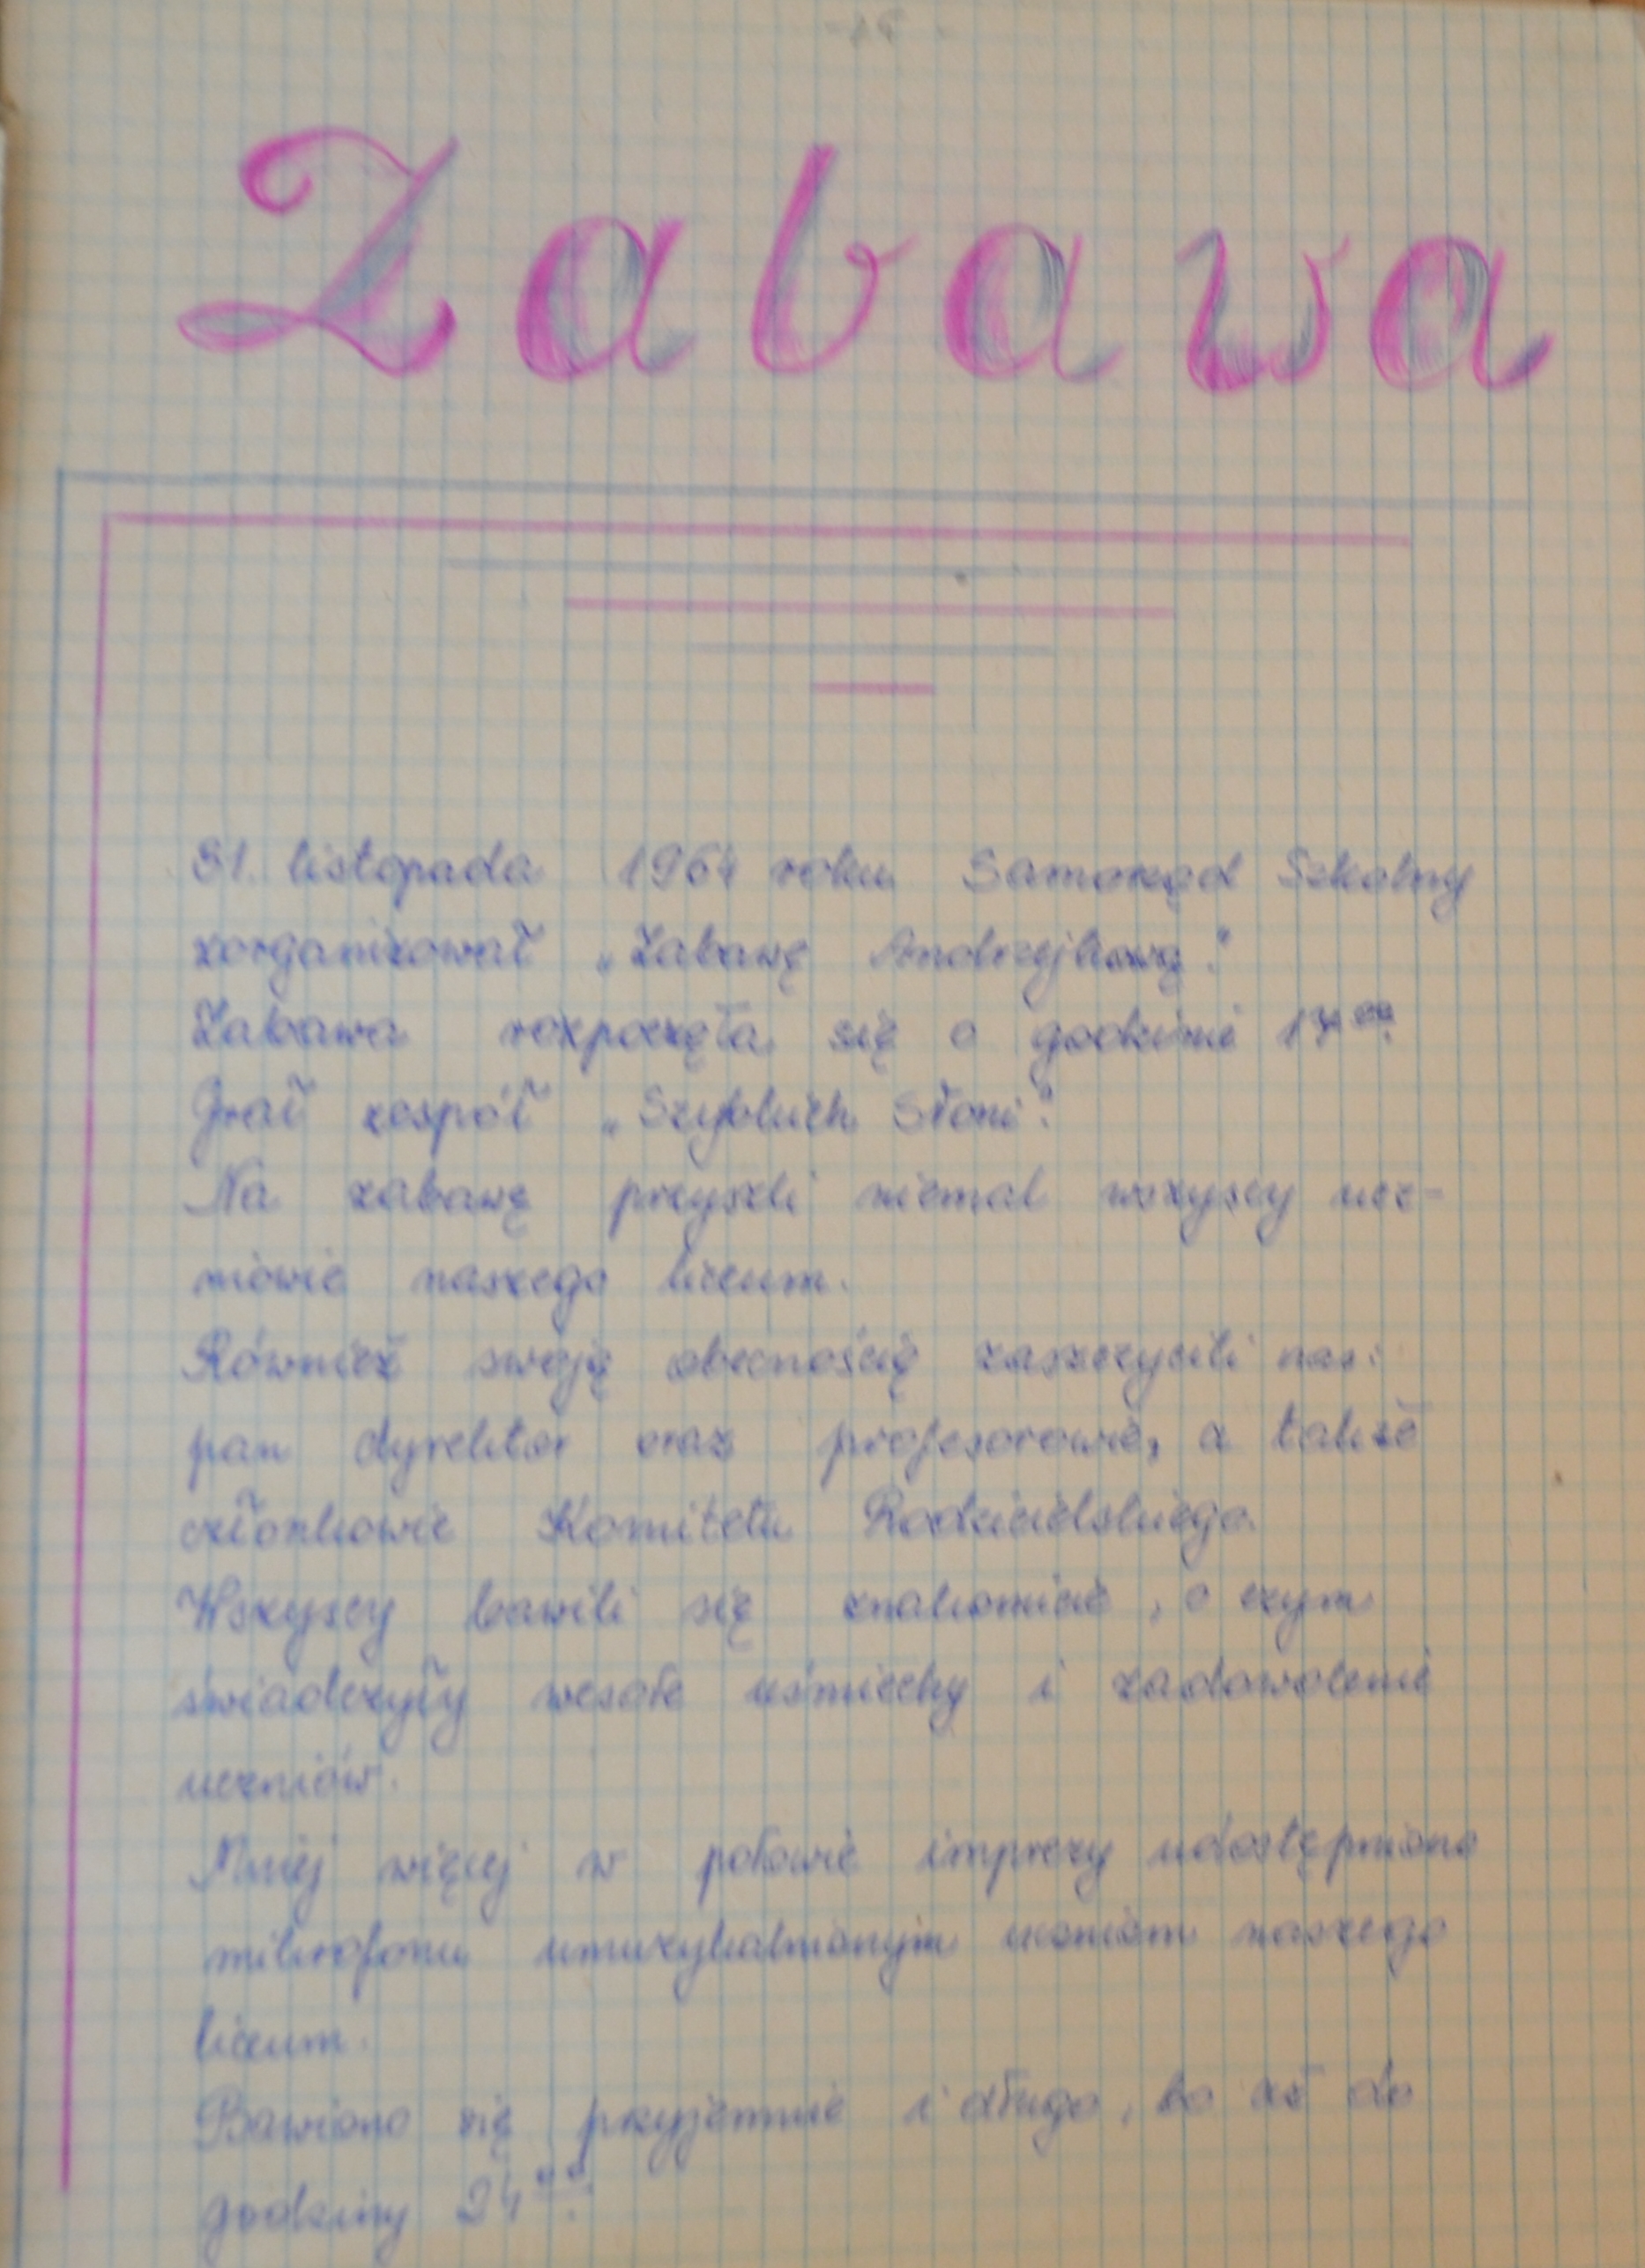 Zabawa
31. listopada 1964 roku Samorząd Szkolny
zorganizował „Zabawę Andrzejkową."
Zabawa rozpoczęła się o godzinie 17⁰⁰.
Grał zespół „Szybkich Słoni".
Na zabawę przyszli niemal wszyscy ucz-
niowie naszego liceum.
Również swoją obecnością zaszczycili nas:
pan dyrektor oraz profesorowie, a także
członkowie Komitetu Rodzicielskiego.
Wszyscy bawili się znakomicie, o czym
świadczyły wesołe uśmiechy i zadowolenie
uczniów.
Mniej więcej w połowie imprezy udostępniono
mikrofonu umuzykalnionym uczniom naszego
liceum.
Bawiono się przyjemnie i długo, bo aż do
godziny 24⁰⁰.